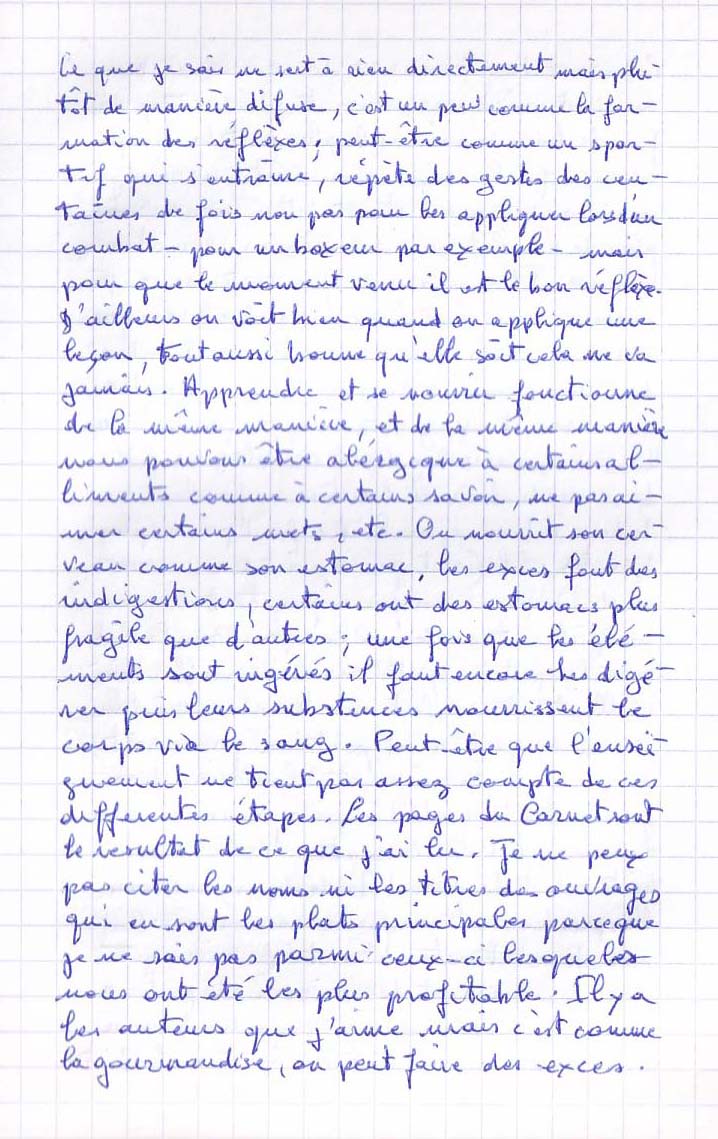 Ce que je sais ne sert à rien directement mais plu-
tôt de manière difuse, c'est un peu comme la for-
mation des réflèxes; peut-être comme un spor-
tif qui s'entraine, répète des gestes des cen-
taines de fois non pas pour les appliquer lors d'un
combat - pour un boxeur par exemple - mais
pour que le moment venu il est le bon réflèxe.
D'ailleurs on voit bien quand on applique une
leçon, tout aussi bonne qu'elle soit cela ne va
jamais. Apprendre et se nourrir fonctionne
de la même manière, et de la même manière
nous pouvons être alérgique à certains al-
liments comme à certains savoir, ne pas ai-
mer certains mets, etc. On nourrit son cer-
veau comme son estomac, les exces font des
indigestions, certains ont des estomacs plus
fragile que d'autres; une fois que les élé-
ments sont ingérés il faut encore les digé-
rer puis leurs substences nourrissent le
corps via le sang. Peut-être que l'ensei-
gnement ne tient pas assez compte de ces
differentes étapes. Les pages du Carnet sont
le resultat de ce que j'ai lu. Je ne peux
pas citer les noms ni les titres des ouvrages
qui en sont les plats principales parceque
je ne sais pas parmi ceux-ci lesqueles
nous ont été les plus profitable. Il y a
les auteurs que j'aime mais c'est comme
la gourmandise, on peut faire des exces.